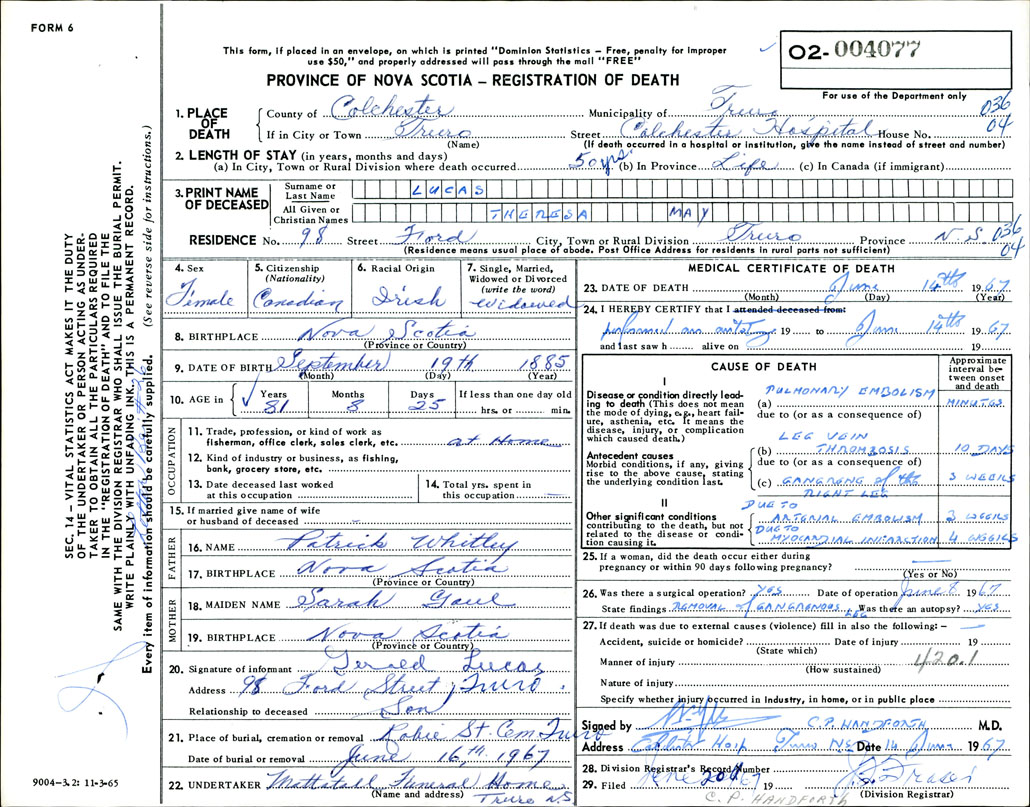 FORM 6
This form, if placed in an envelope, on which is printed "Dominion Statistics – Free, penalty for improper
use $50," and properly addressed will pass through the mail "FREE"
02-004077
PROVINCE OF NOVA SCOTIA – REGISTRATION OF DEATH
For use of the Department only
1. PLACE OF DEATH
County of Colchester Municipality of Truro 036
If in City or Town Truro Street Colchester Hospital House No. 04
(Name) (If death occurred in a hospital or institution, give the name instead of street and number)
2. LENGTH OF STAY (in years, months and days)
(a) In City, Town or Rural Division where death occurred 50 yrs. (b) In Province Life (c) In Canada (if immigrant)
3. PRINT NAME OF DECEASED
Surname or Last Name LUCAS
All Given or Christian Names THERESA MAY
RESIDENCE No. 98 Street Ford City, Town or Rural Division Truro Province N S 036
(Residence means usual place of abode. Post Office Address for residents in rural parts not sufficient) 04
4. Sex Female
5. Citizenship (Nationality) Canadian
6. Racial Origin Irish
7. Single, Married, Widowed or Divorced (write the word) Widowed
8. BIRTHPLACE Nova Scotia
(Province or Country)
9. DATE OF BIRTH September 19th 1885
(Month) (Day) (Year)
10. AGE in Years Months Days If less than one day old
81 8 25 hrs. or min.
OCCUPATION
11. Trade, profession, or kind of work as
fisherman, office clerk, sales clerk, etc. at Home
12. Kind of industry or business, as fishing,
bank, grocery store, etc.
13. Date deceased last worked
at this occupation
14. Total yrs. spent in
this occupation
15. If married give name of wife
or husband of deceased
FATHER
16. NAME Patrick Whitley
17. BIRTHPLACE Nova Scotia
(Province or Country)
MOTHER
18. MAIDEN NAME Sarah Gaul
19. BIRTHPLACE Nova Scotia
(Province or Country)
20. Signature of informant Gerald Lucas
Address 98 Ford Street, Truro.
Relationship to deceased Son
21. Place of burial, cremation or removal Robie St. Cem Truro
Date of burial or removal June 16th, 1967
22. UNDERTAKER Mattatall Funeral Home
(Name and address) Truro N.S
MEDICAL CERTIFICATE OF DEATH
23. DATE OF DEATH June 14th 1967
(Month) (Day) (Year)
24. I HEREBY CERTIFY that I attended deceased from:
performed an autopsy 19 to June 14th 1967
and last saw h alive on 19
CAUSE OF DEATH
Approximate interval between onset and death
I
Disease or condition directly leading to death (This does not mean
the mode of dying, e.g., heart failure, asthenia, etc. It means the
disease, injury, or complication
which caused death.)
(a) PULMONARY EMBOLISM MINUTES
due to (or as a consequence of)
Antecedent causes
Morbid conditions, if any, giving
rise to the above cause, stating
the underlying condition last.
(b) LEG VEIN THROMBOSIS 10 DAYS
due to (or as a consequence of)
(c) GANGRENE of the RIGHT LEG 3 WEEKS
II
Other significant conditions
contributing to the death, but not
related to the disease or condition causing it.
DUE TO ARTERIAL EMBOLISM 3 WEEKS
DUE TO MYOCARDIAL INFARCTION 4 WEEKS
25. If a woman, did the death occur either during
pregnancy or within 90 days following pregnancy?
(Yes or No)
26. Was there a surgical operation? YES Date of operation June 8 1967
State findings REMOVAL of GANGRENOUS LEG Was there an autopsy? YES
27. If death was due to external causes (violence) fill in also the following: –
Accident, suicide or homicide? Date of injury 19
(State which)
Manner of injury 420.1
(How sustained)
Nature of injury
Specify whether injury occurred in industry, in home, or in public place
Signed by C.P. HANDFORTH M.D.
Address Colchester Hosp Truro NS Date 14 June 1967
28. Division Registrar's Record Number
29. Filed June 20 1967
C. P. HANDFORTH (Division Registrar)
SEC. 14 – VITAL STATISTICS ACT MAKES IT THE DUTY
OF THE UNDERTAKER OR PERSON ACTING AS UNDER-
TAKER TO OBTAIN ALL THE PARTICULARS REQUIRED
IN THE "REGISTRATION OF DEATH" AND TO FILE THE
SAME WITH THE DIVISION REGISTRAR WHO SHALL ISSUE THE BURIAL PERMIT.
WRITE PLAINLY WITH UNFADING INK. THIS IS A PERMANENT RECORD.
Every item of information should be carefully supplied. (See reverse side for instructions.)
9004–3.2: 11-3-65